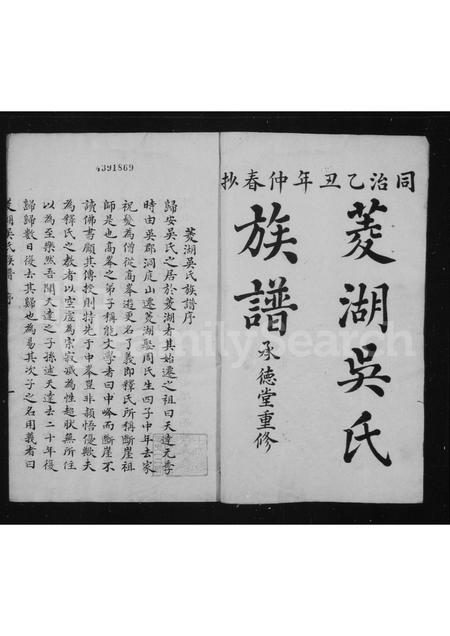 同治乙丑年仲春抄
菱湖吳氏
族譜
承德堂重修
4391869
菱湖吳氏族譜序
歸安吳氏之居於菱湖者其始遷之祖曰天達元季
時由吳郡洞庭山遷菱湖娶周氏生四子中年去家
祝髮為僧從高峯遊更名了義即釋氏所稱斷崖祖
師是也高峯之弟子稱能文學者曰中峰而斷崖不
讀佛書顧其傳授則特先于中峯豈非穎悟優歟夫
為釋氏之教者以空虛為宗寂滅為性超狀無所住
以為至樂然吾聞天達之子孫述天達去二十年復
歸歸數日復去其歸也為易其次子之名用義者曰
菱湖吳氏族譜 序 一
FamilySearch